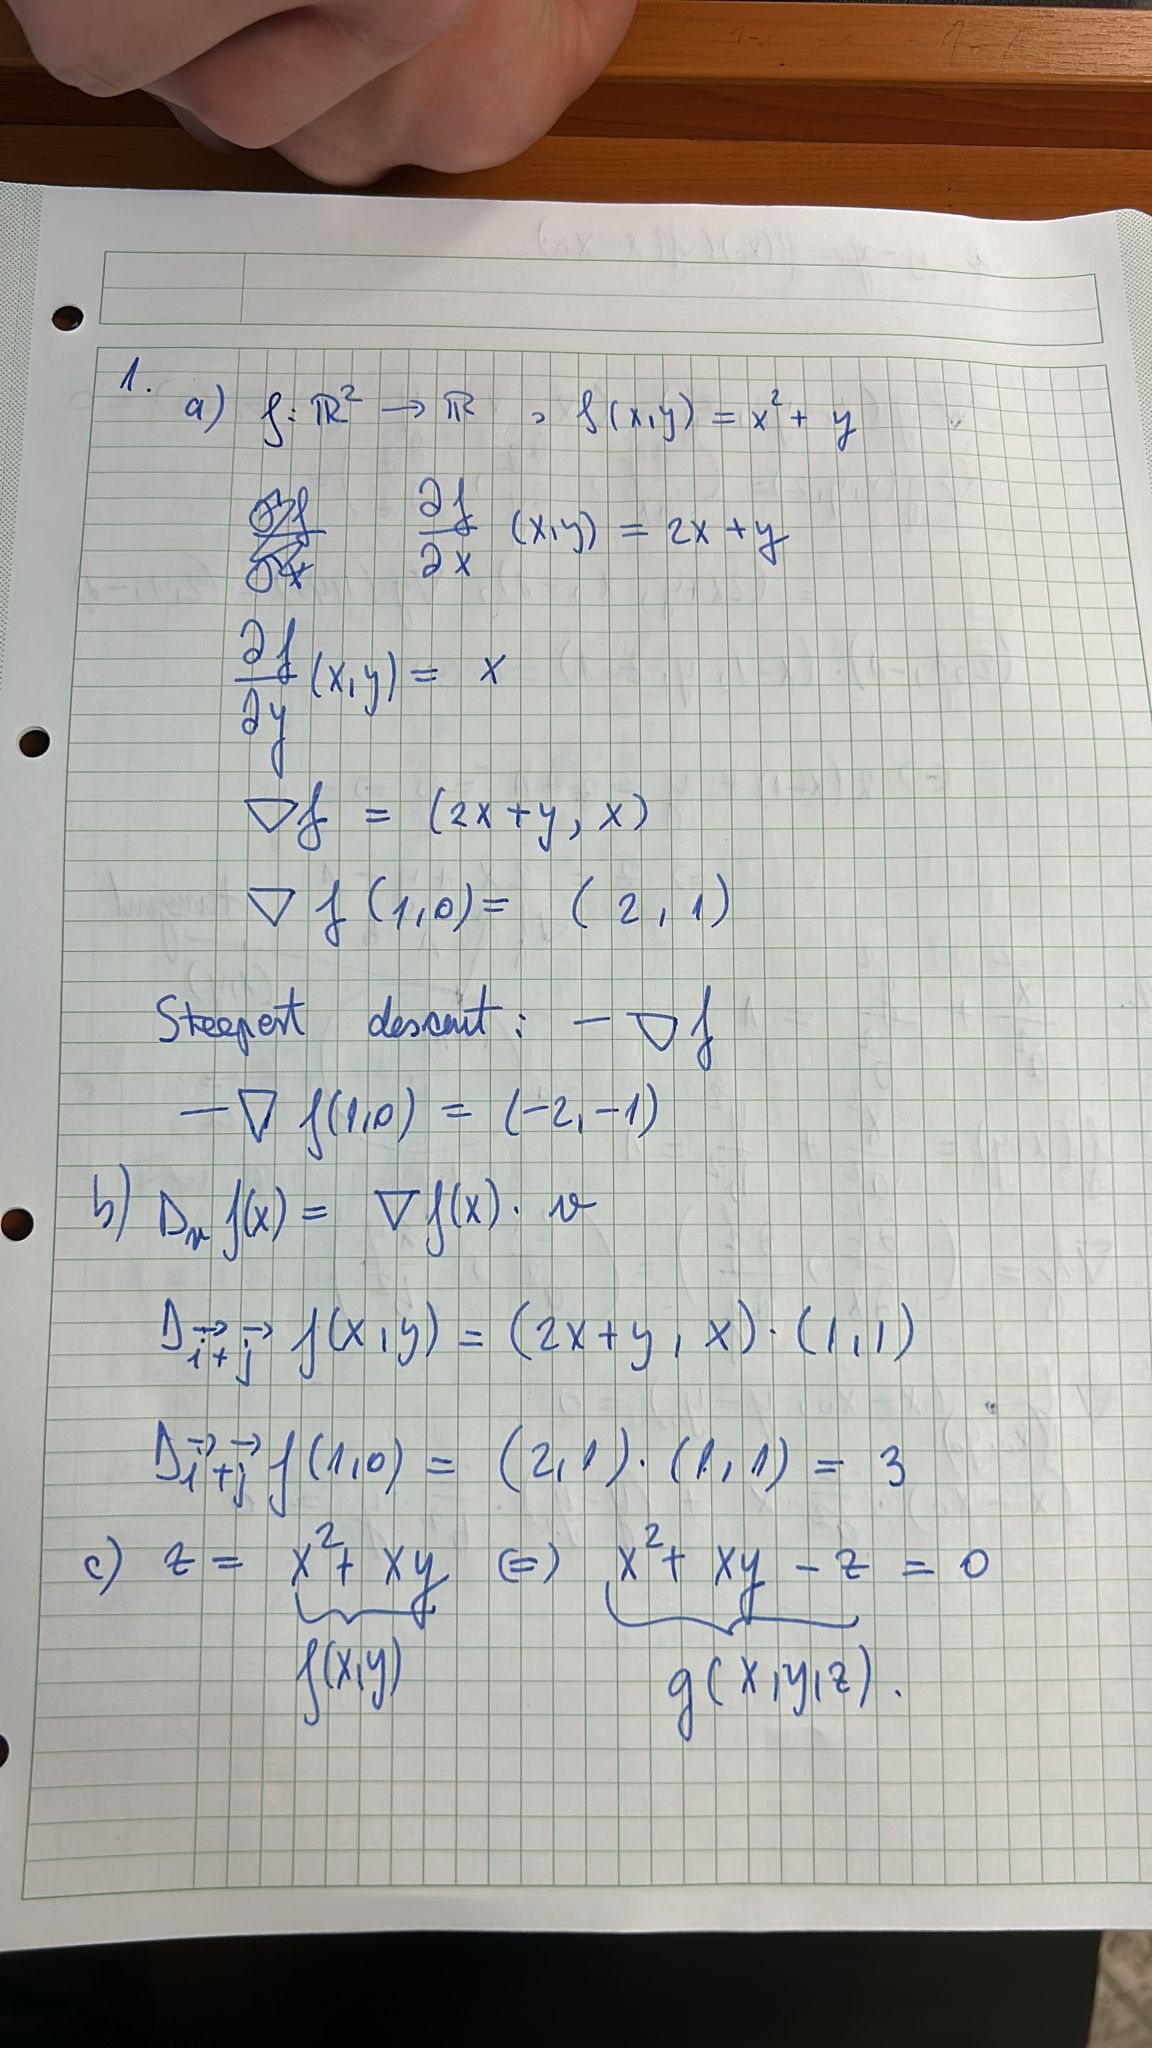 1.
a) f: ℝ² → ℝ , f(x,y) = x² + y
∂f/∂x (x,y) = 2x + y
∂f/∂y (x,y) = x
∇f = (2x+y, x)
∇f(1,0) = (2, 1)
Steepest descent: -∇f
-∇f(1,0) = (-2, -1)
b) D_v f(x) = ∇f(x) · v
D_{i⃗+j⃗} f(x,y) = (2x+y, x) · (1,1)
D_{i⃗+j⃗} f(1,0) = (2,1) · (1,1) = 3
c) z = x² + xy (=) x² + xy - z = 0
f(x,y) g(x,y,z).